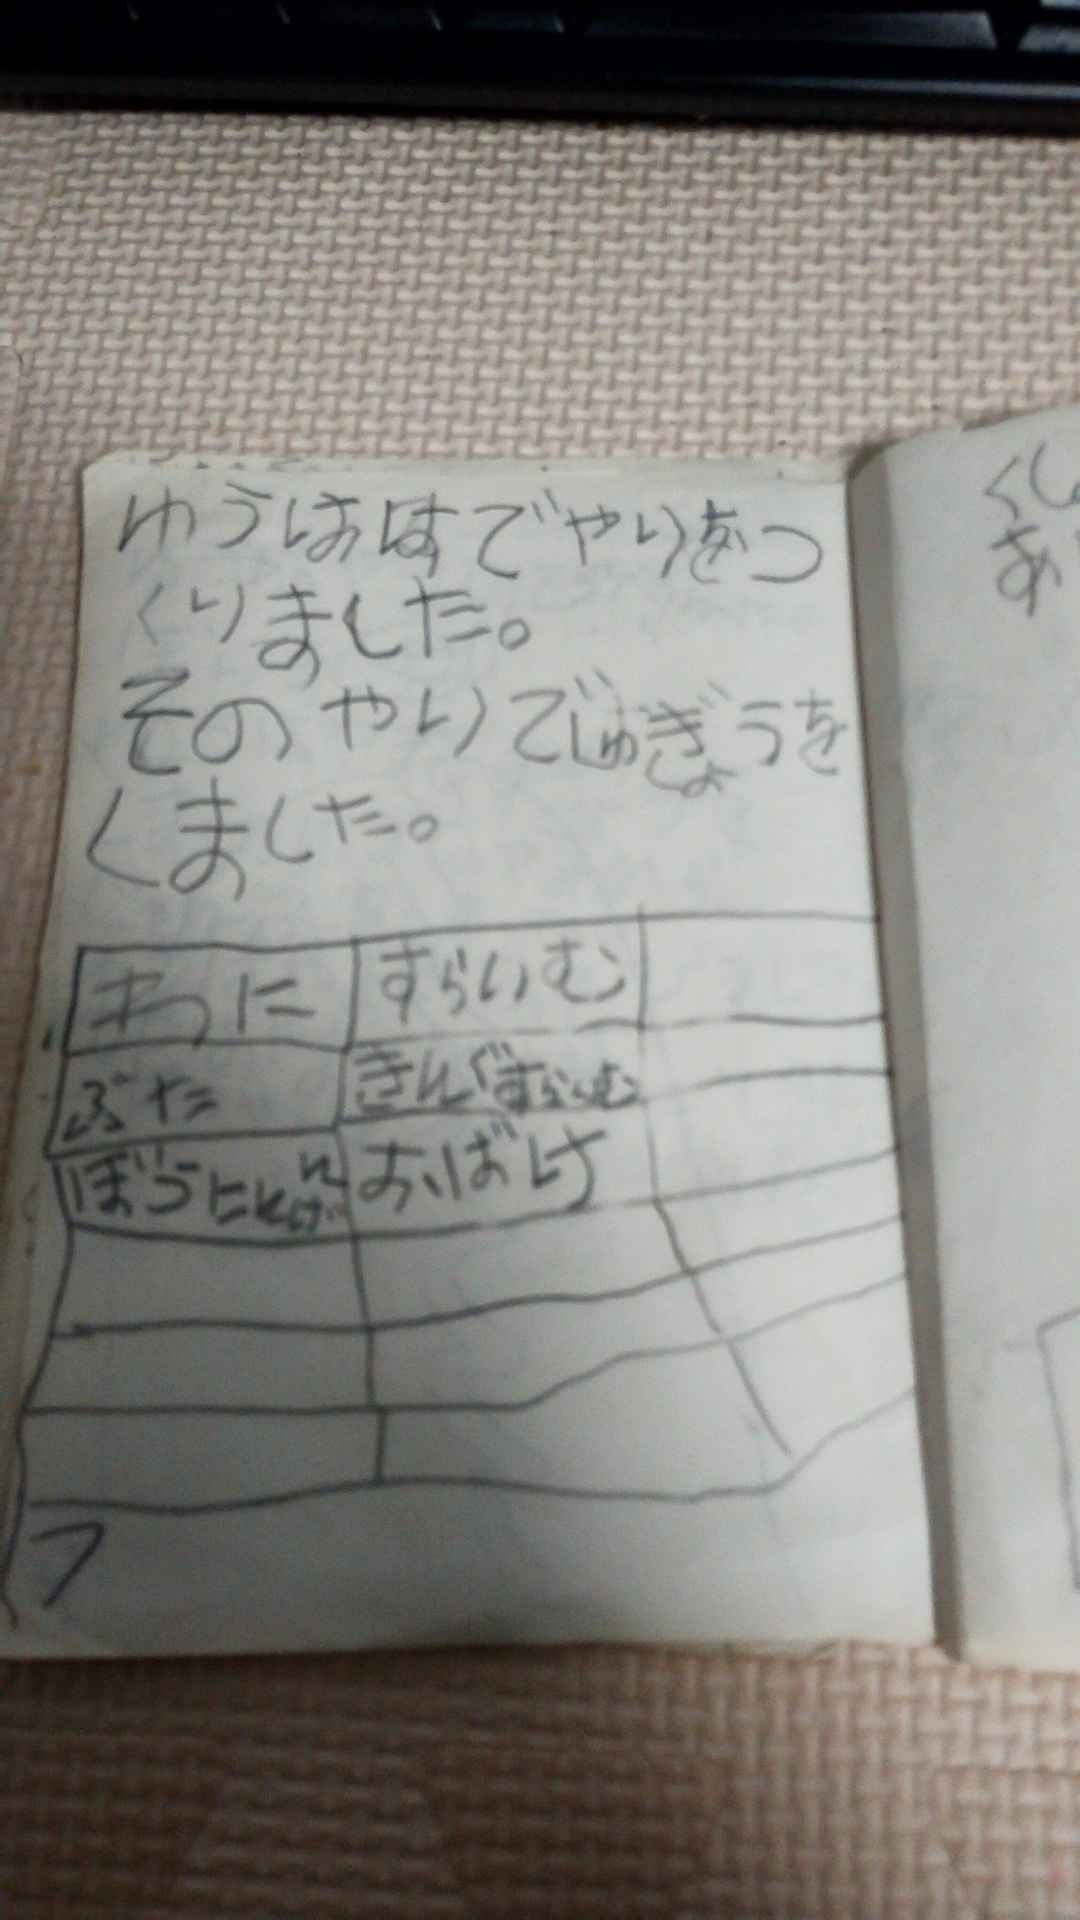 ゆうはほすでやりをつ
くりました。
そのやりでじゅぎょうを
くました。
わに
すらいむ
ぶた
きんぐすらいむ
ぼうにんげん
おばけ
フ
くし
あ